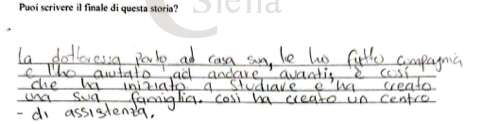 Siena
Puoi scrivere il finale di questa storia?
La dottoressa portò ad casa sua, le ha fatto compagnia
e l'ho aiutato ad andare avanti, e così
che ha iniziato a studiare e ha creato
una sua famiglia. così ha creato un centro
- di assistenza.